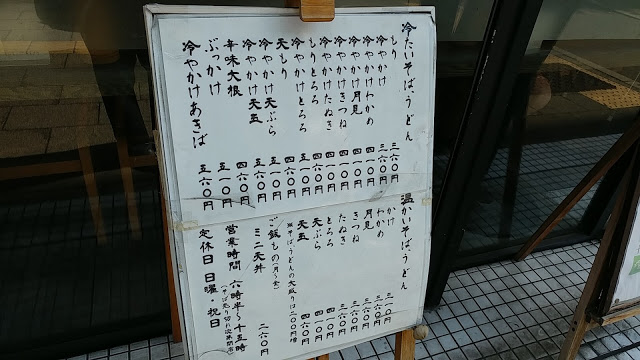 冷たいそばうどん
もり 三六〇円
冷やかけ 三六〇円
冷やかけわかめ 四一〇円
冷やかけ月見 四一〇円
冷やかけきつね 四一〇円
冷やかけたぬき 四一〇円
もりとろろ
冷やかけとろろ
天もり
冷やかけ天ぷら 五一〇円
冷やかけ天玉 五六〇円
辛味大根 五一〇円
ぶっかけ 五一〇円
冷やかけあきば 五六〇円
温かいそばうどん
かけ 三一〇円
わかめ 三六〇円
月見 三六〇円
きつね 三六〇円
たぬき 三六〇円
とろろ 四一〇円
天ぷら 四一〇円
天玉 四六〇円
※そばうどんの大盛りは二〇〇円増
ご飯もの(月〜金)
ミニ天丼 二六〇円
営業時間 六時半〜十五時
(そば売り切れ次第閉店)
定休日 日曜・祝日